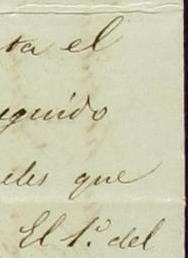 ta el
eguido
eles que
El 1º del